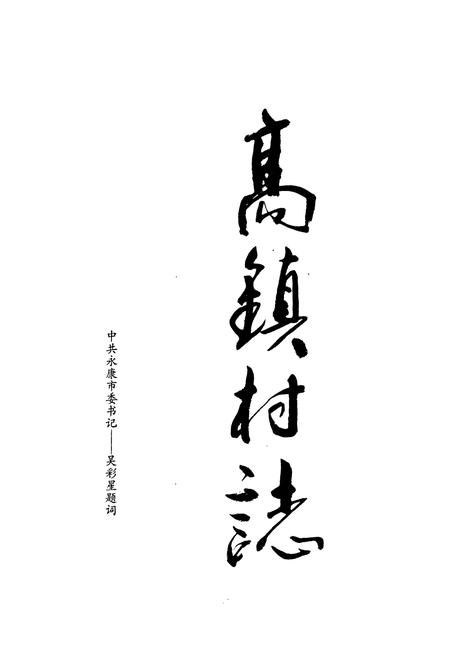 高鎮村誌
中共永康市委书记——吴彩星题词